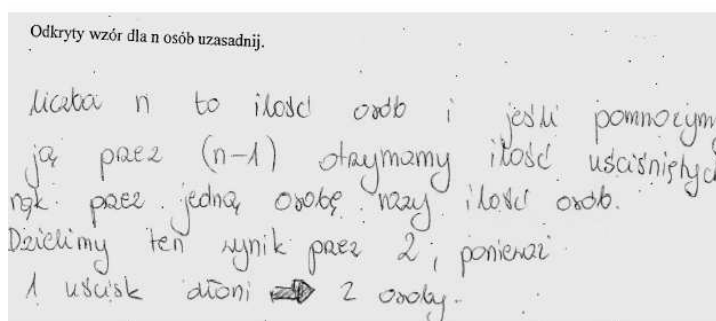 Odkryty wzór dla n osób uzasadnij.
Liczba n to ilość osób i jeśli pomnożymy
ją przez (n-1) otrzymamy ilość uściśniętych
rąk przez jedną osobę razy ilość osób.
Dzielimy ten wynik przez 2, ponieważ
1 uścisk dłoni ⇒ 2 osoby.